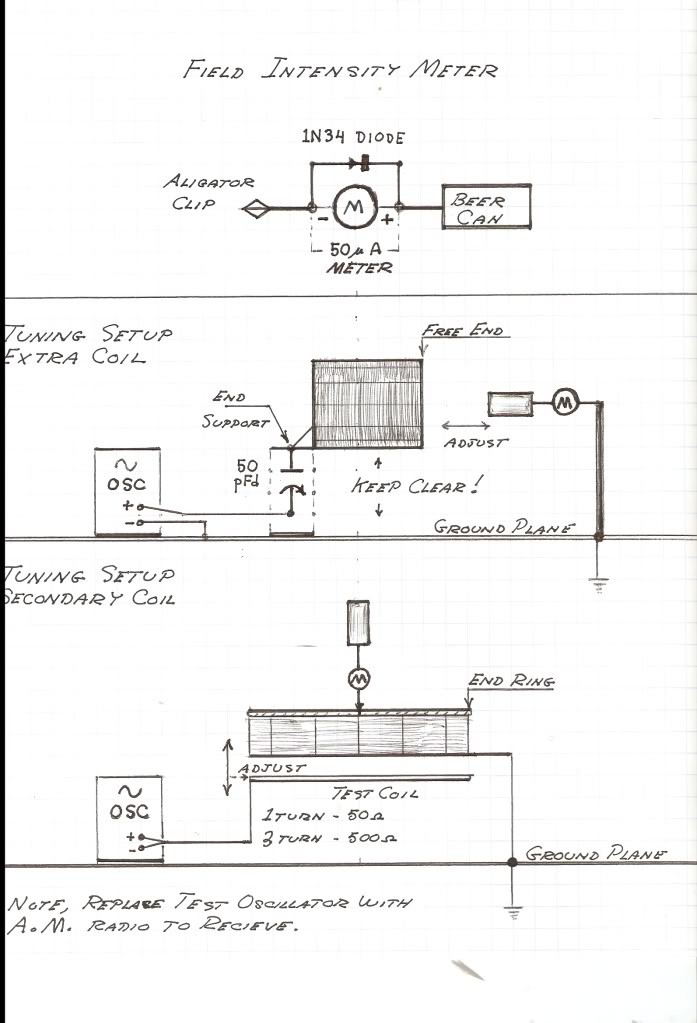 FIELD INTENSITY METER
1N34 DIODE
ALIGATOR
CLIP
M
- +
BEER
CAN
50µA
METER
TUNING SETUP
EXTRA COIL
FREE END
END
SUPPORT
M
ADJUST
50
pFd
KEEP CLEAR!
OSC
+
-
GROUND PLANE
TUNING SETUP
SECONDARY COIL
M
END RING
ADJUST
TEST COIL
OSC
+
-
1 TURN - 50Ω
3 TURN - 500Ω
GROUND PLANE
NOTE, REPLACE TEST OSCILLATOR WITH
A.M. RADIO TO RECIEVE.